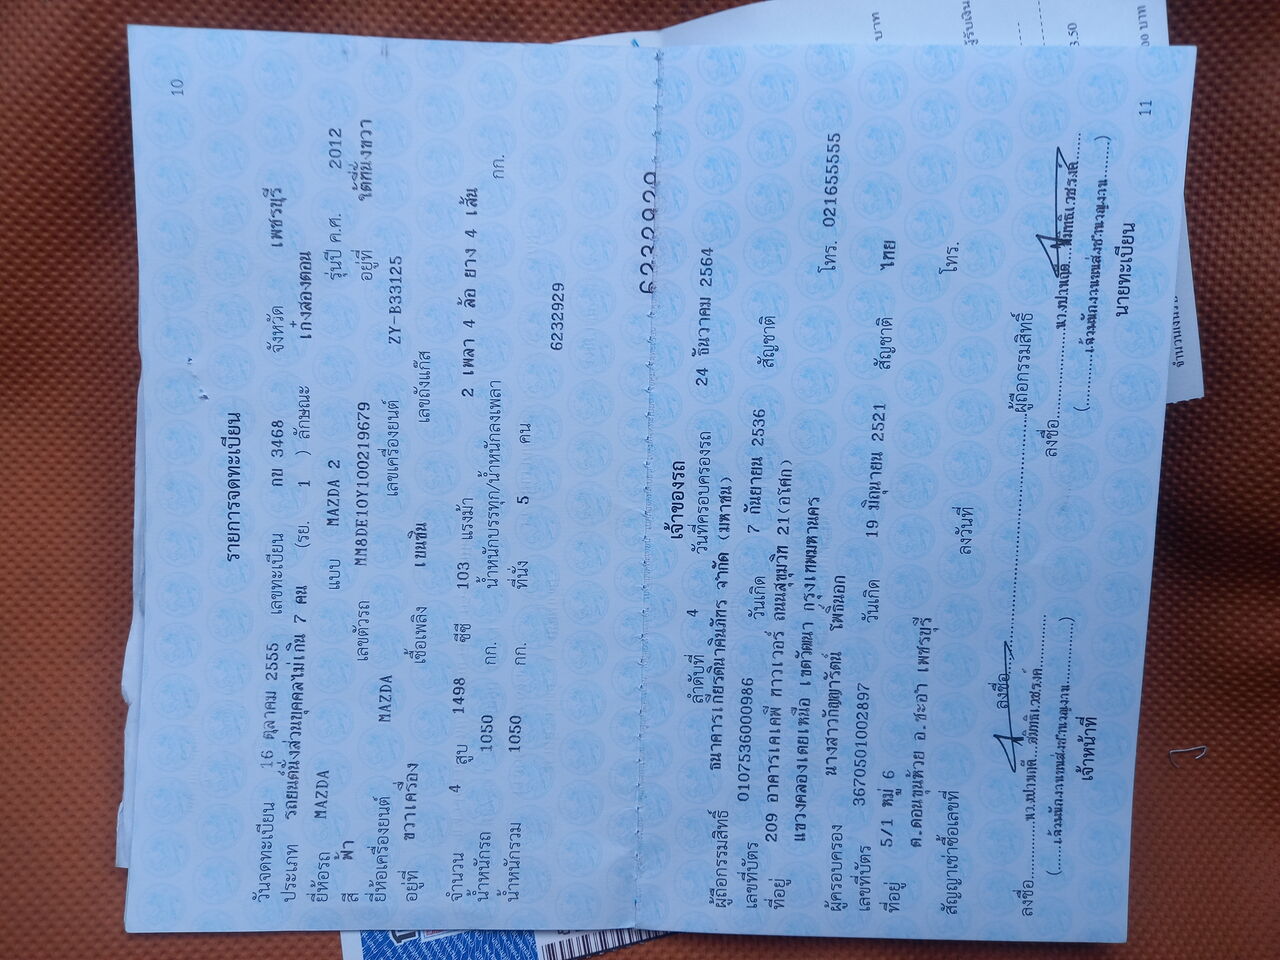 10
รายการจดทะเบียน
วันจดทะเบียน 16 ตุลาคม 2555 เลขทะเบียน กข 3468 จังหวัด เพชรบุรี
ประเภท รถยนต์นั่งส่วนบุคคลไม่เกิน 7 คน (รย. 1 ) ลักษณะ เก๋งสองตอน
ยี่ห้อรถ MAZDA แบบ MAZDA 2 รุ่นปี ค.ศ. 2012
สี ฟ้า เลขตัวรถ MM8DE10Y100219679 อยู่ที่ ใต้ที่นั่งขวา
ยี่ห้อเครื่องยนต์ MAZDA เลขเครื่องยนต์ ZY-B33125
อยู่ที่ ขวาเครื่อง เชื้อเพลิง เบนซิน เลขถังแก๊ส
จำนวน 4 สูบ 1498 ซีซี 103 แรงม้า 2 เพลา 4 ล้อ ยาง 4 เส้น
น้ำหนักรถ 1050 กก. น้ำหนักบรรทุก/น้ำหนักลงเพลา กก.
น้ำหนักรวม 1050 กก. ที่นั่ง 5 คน
6232929
6232929
เจ้าของรถ
ลำดับที่ 4 วันที่ครอบครองรถ 24 ธันวาคม 2564
ผู้ถือกรรมสิทธิ์ ธนาคารเกียรตินาคินภัทร จำกัด (มหาชน)
เลขที่บัตร 0107536000986 วันเกิด 7 กันยายน 2536 สัญชาติ
ที่อยู่ 209 อาคารเคเคพี ทาวเวอร์ ถนนสุขุมวิท 21(อโศก)
แขวงคลองเตยเหนือ เขตวัฒนา กรุงเทพมหานคร โทร. 021655555
ผู้ครอบครอง นางสาวกัญญารัตน์ โพธิ์นอก
เลขที่บัตร 3670501002897 วันเกิด 19 มิถุนายน 2521 สัญชาติ ไทย
ที่อยู่ 5/1 หมู่ 6
ต.ดอนขุนห้วย อ.ชะอำ เพชรบุรี
สัญญาเช่าซื้อเลขที่ ลงวันที่ โทร.
ลงชื่อ ผู้ถือกรรมสิทธิ์
ลงชื่อ
ลงชื่อ
เจ้าหน้าที่
นายทะเบียน
11
บาท
ผู้รับเงิน
3.50
00 บาท